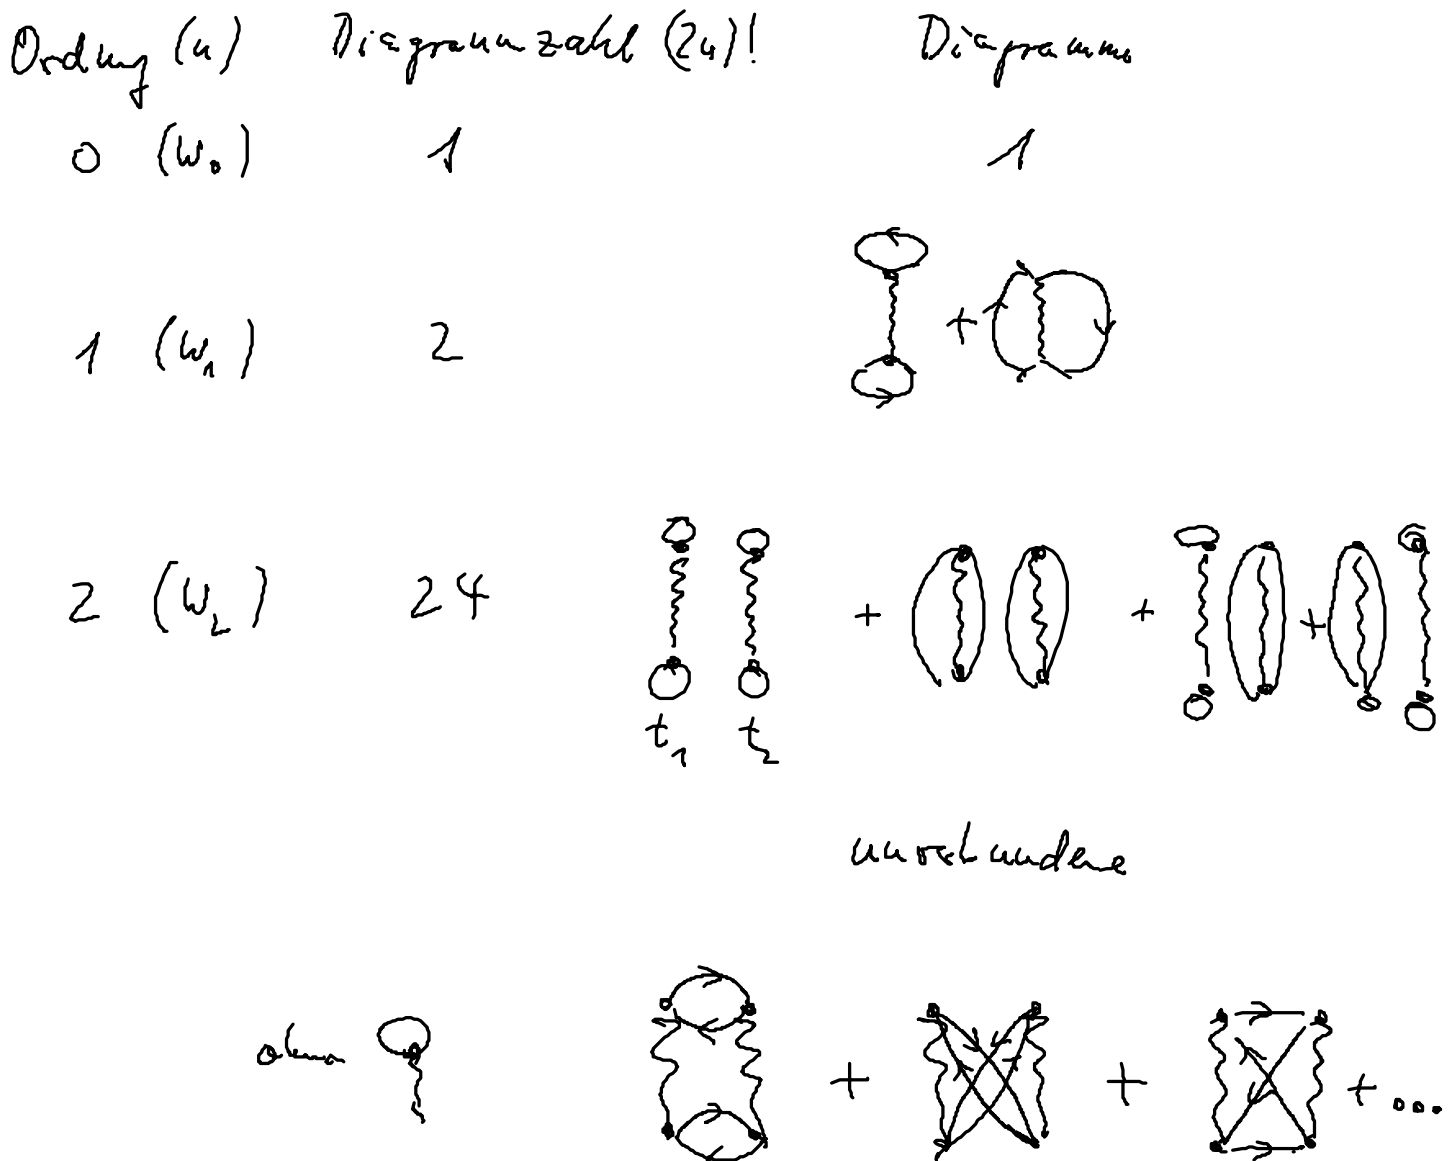 Ordnung (n) Diagrammzahl (2n)! Diagramme
0 (W₀) 1 1
1 (W₁) 2 +
2 (W₂) 24 + + +
t₁ t₂
unverbundene
ohne + + + ...